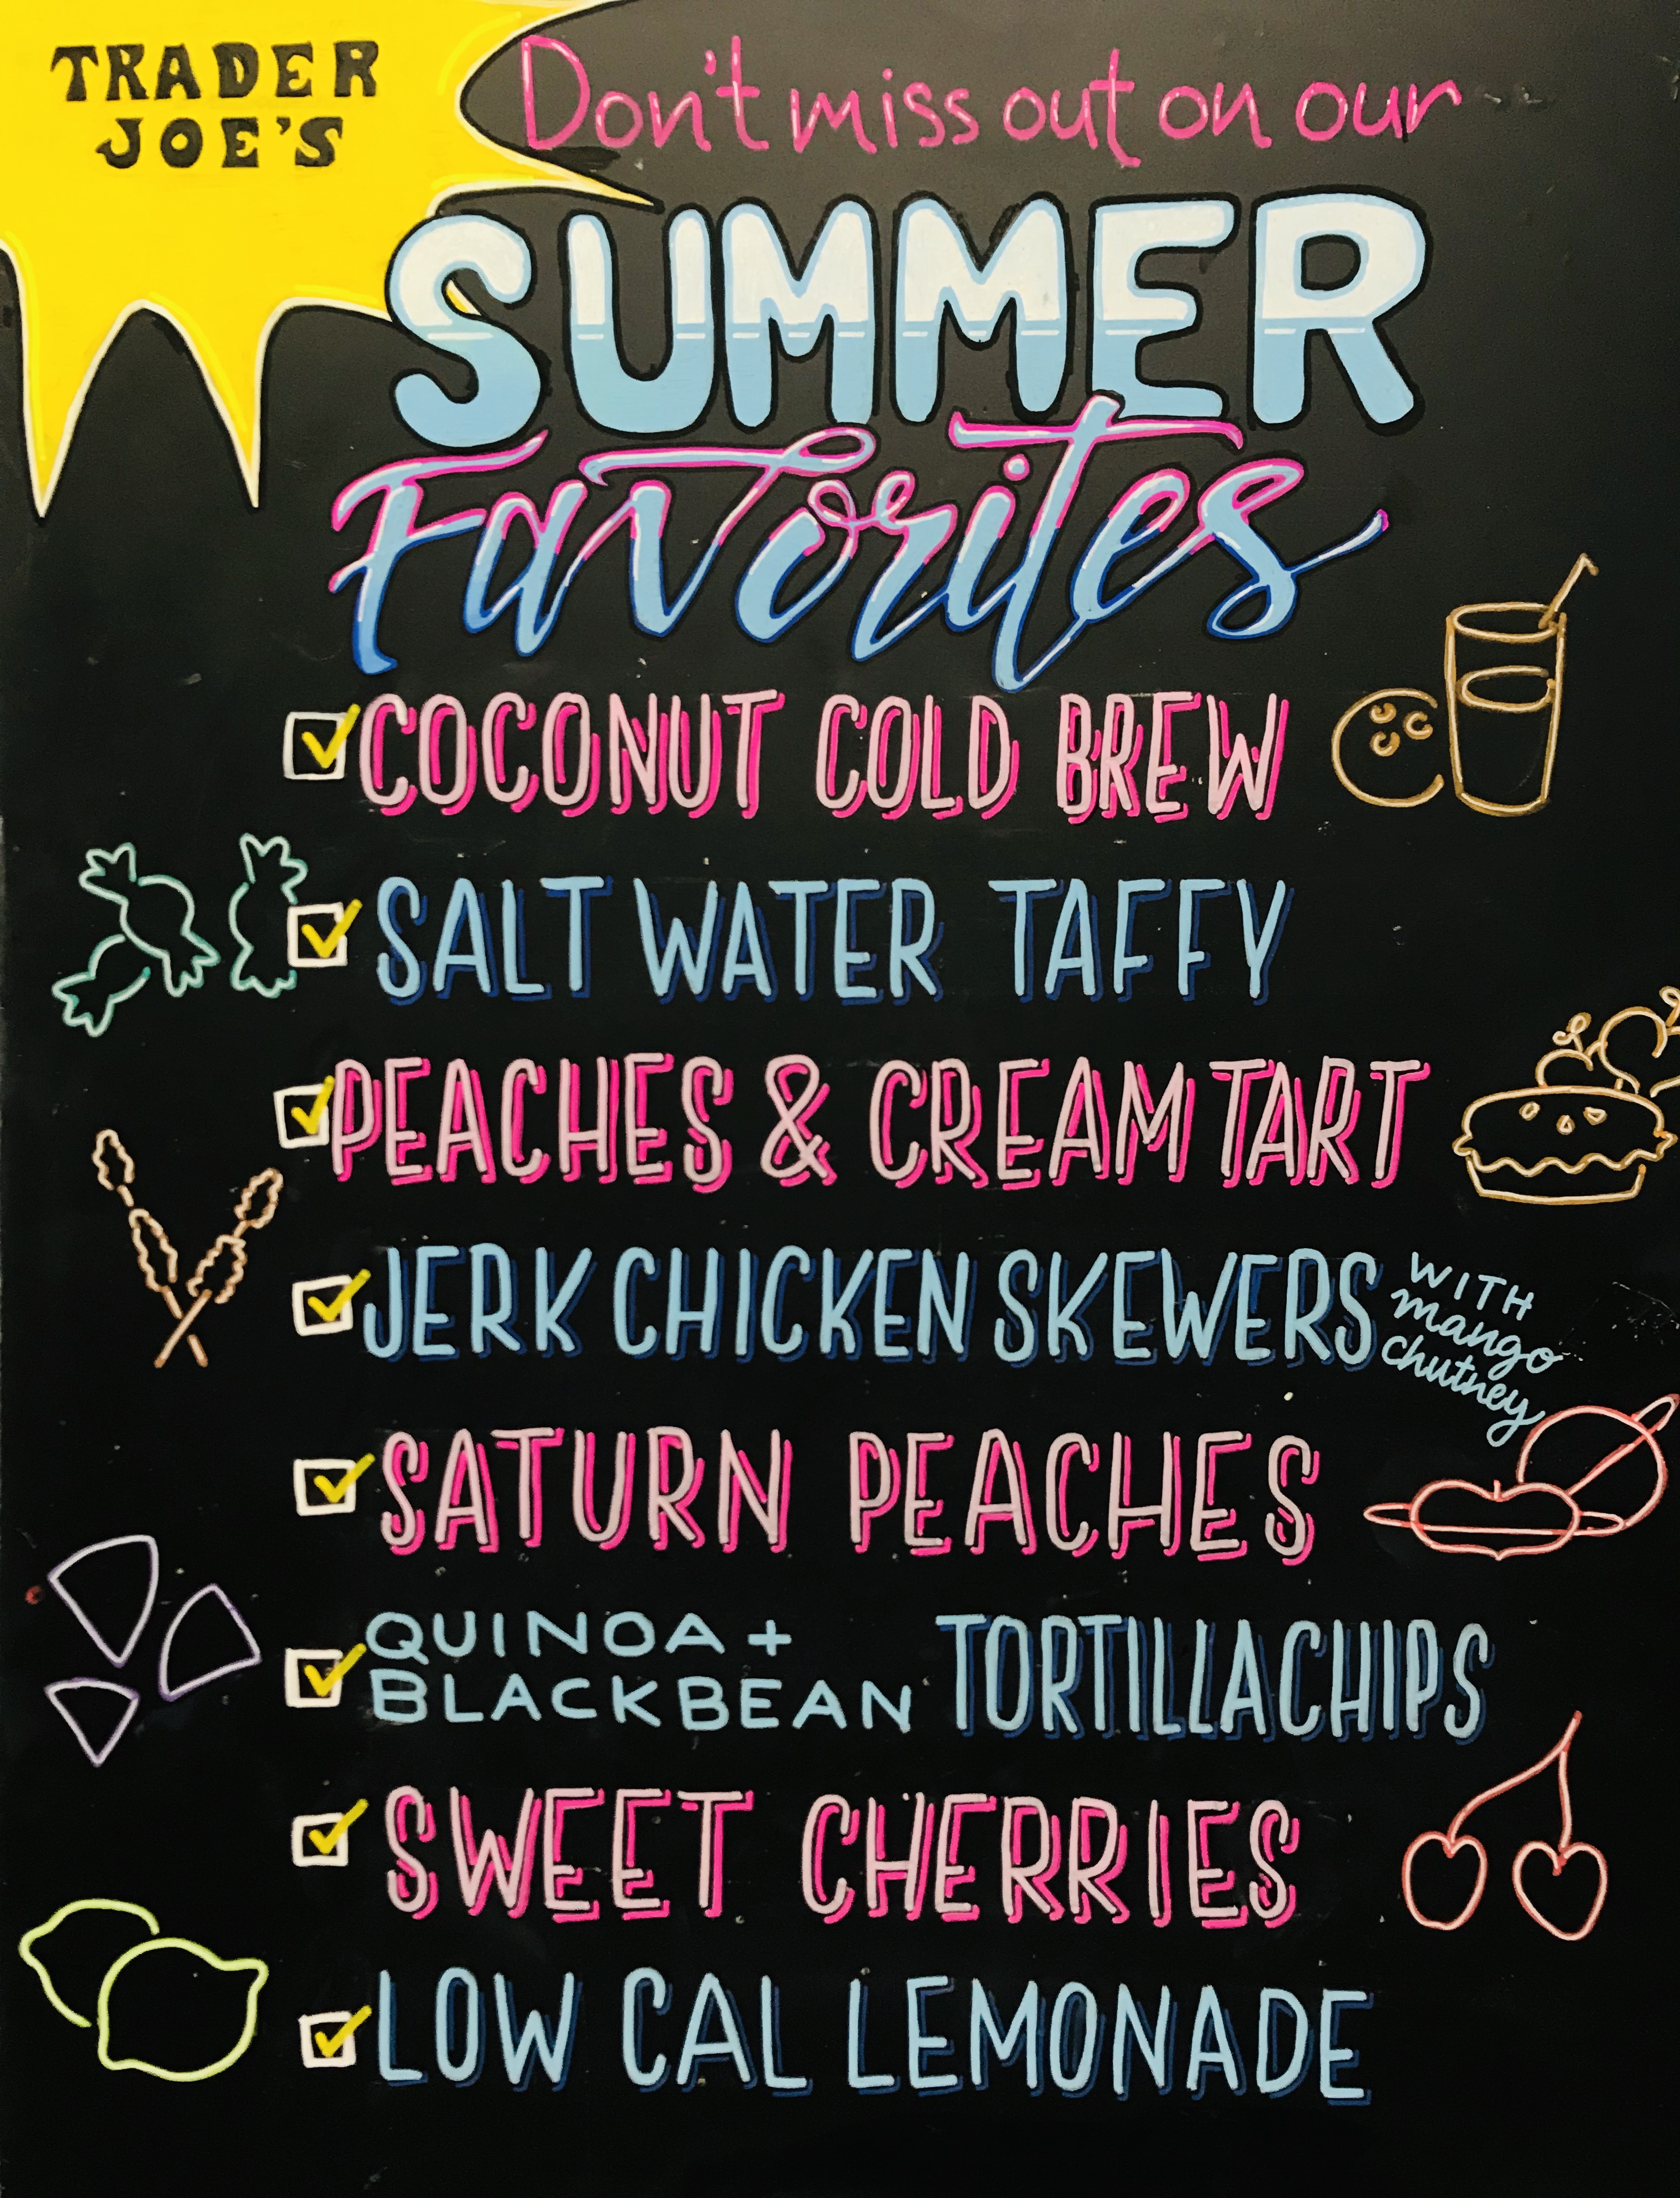 TRADER
JOE'S
Don't miss out on our
SUMMER
Favorites
COCONUT COLD BREW
SALT WATER TAFFY
PEACHES & CREAM TART
JERK CHICKEN SKEWERS WITH
mango
chutney
SATURN PEACHES
QUINOA +
BLACK BEAN TORTILLA CHIPS
SWEET CHERRIES
LOW CAL LEMONADE